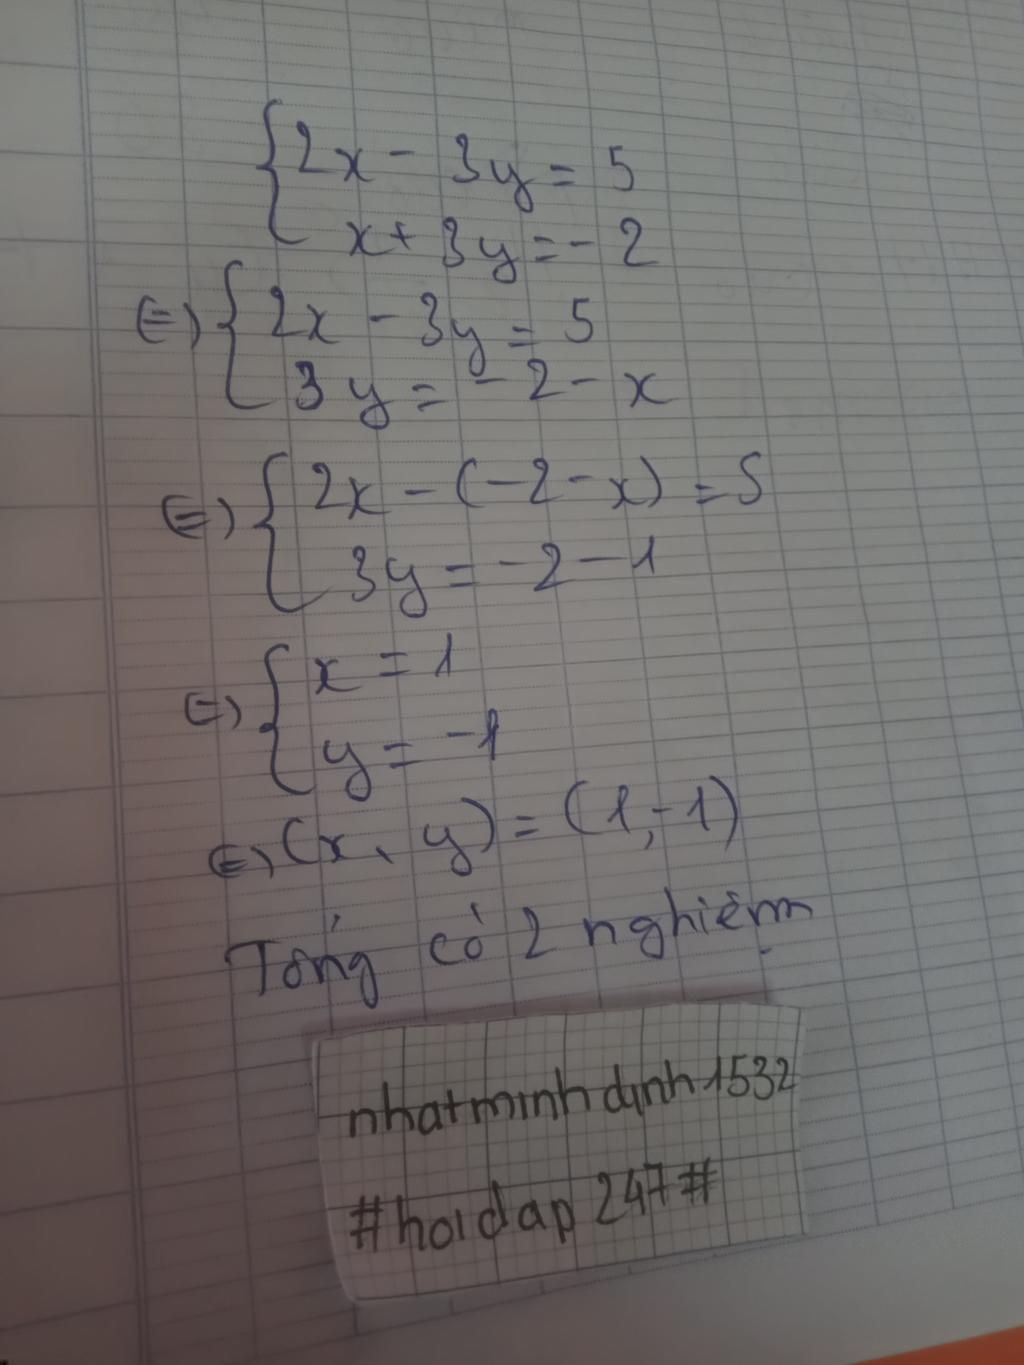 {2x - 3y = 5
x + 3y = - 2
(=) {2x - 3y = 5
3y = - 2 - x
(=) {2x - (-2 - x) = 5
3y = -2 - 1
(=) {x = 1
y = -1
(=) (x, y) = (1, -1)
Tống có 2 nghiệm
nhatminhdịnh1532
#hoidap247#